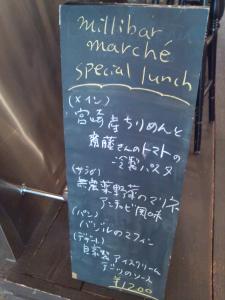 millibar
marché
special lunch
(メイン)
宮崎産ちりめんと
齋藤さんのトマトの
冷製パスタ
(サラダ)
無農薬野菜のマリネ
アンチョビ風味
(パン)
バジルのマフィン
(デザート)
自家製 アイスクリーム
のソース
¥1200